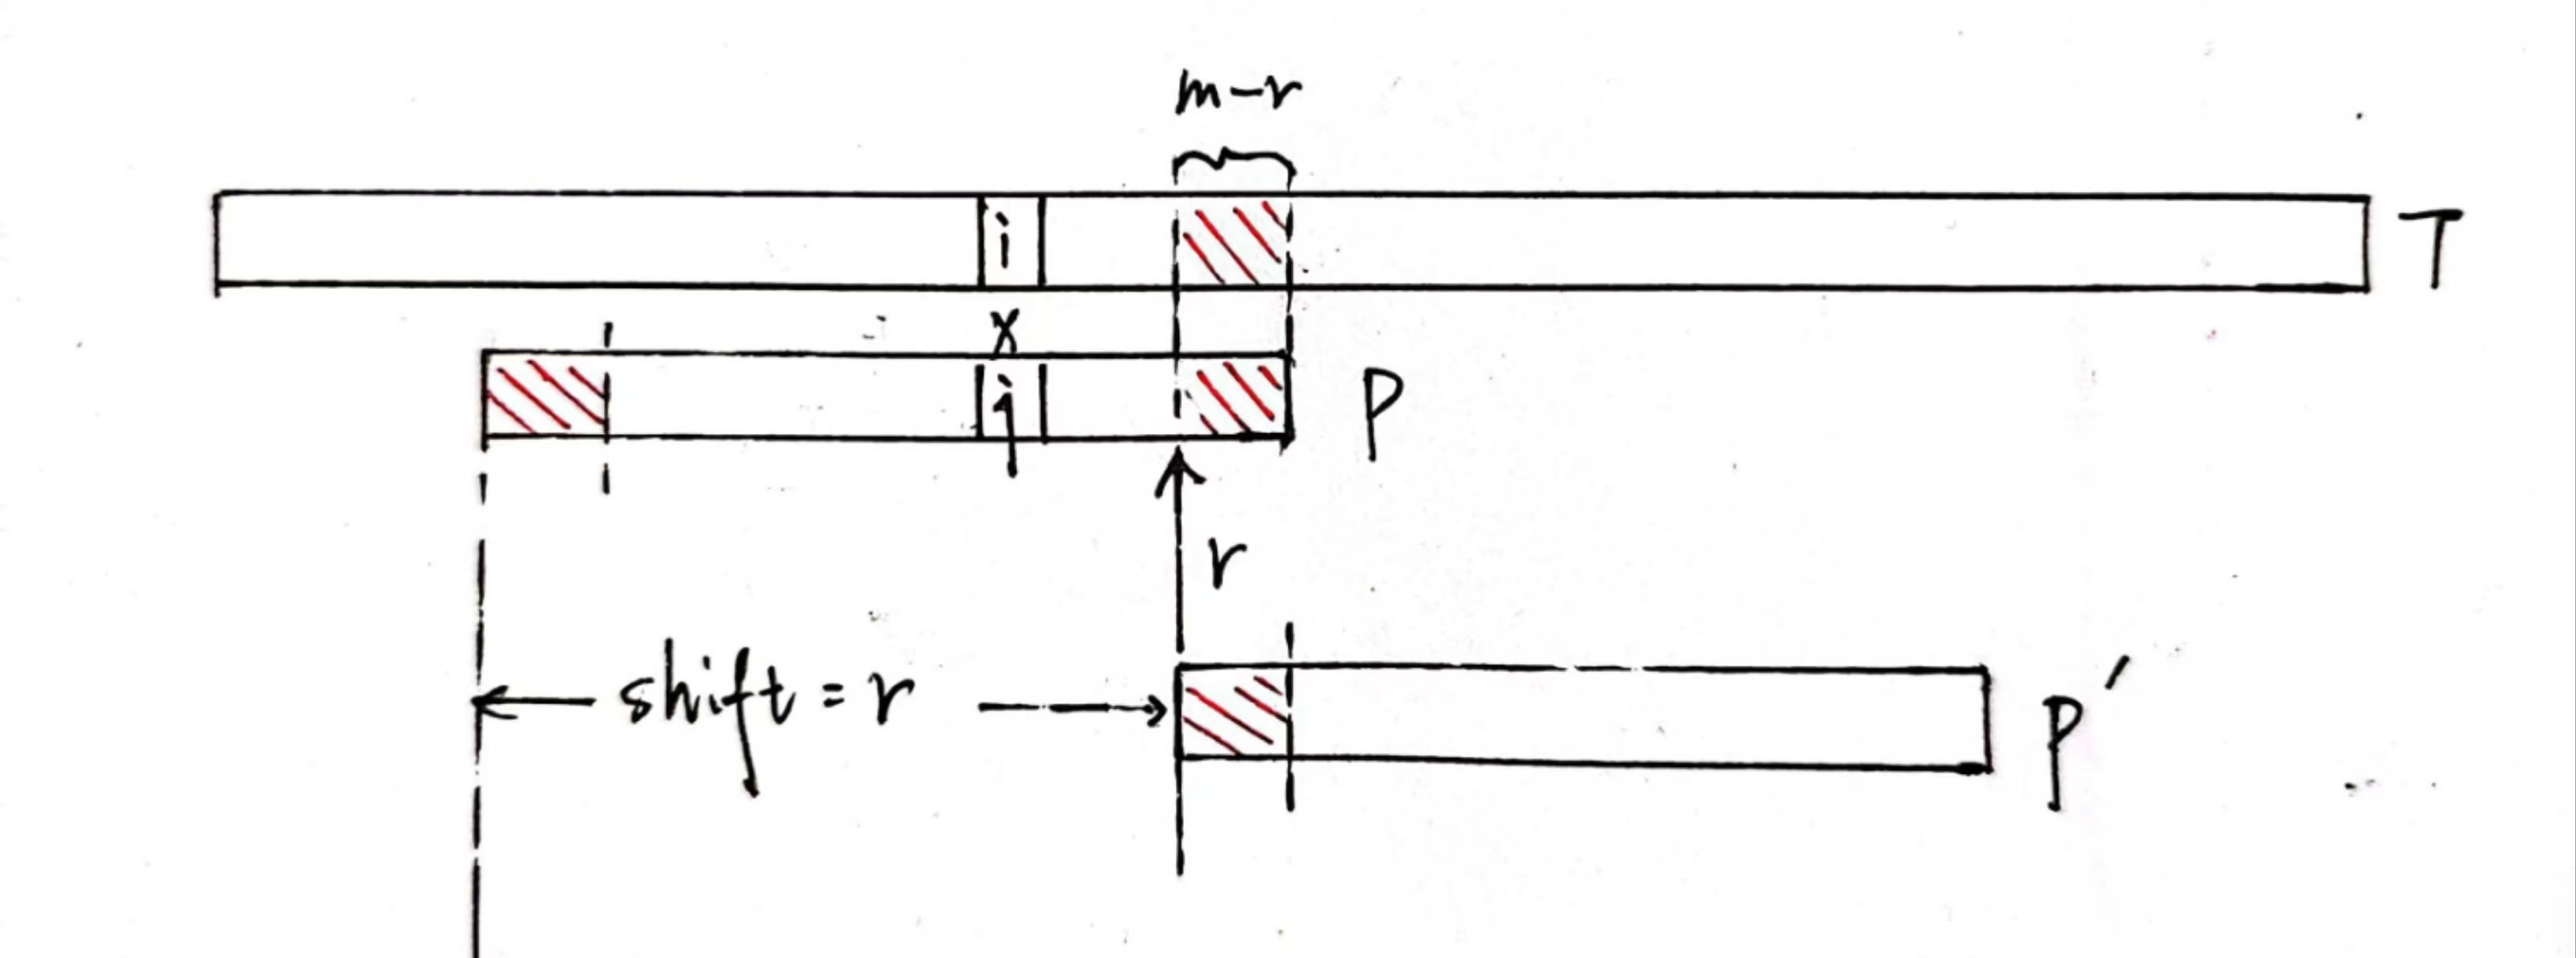 m-r
i
T
x
j
P
r
shift = r
P'